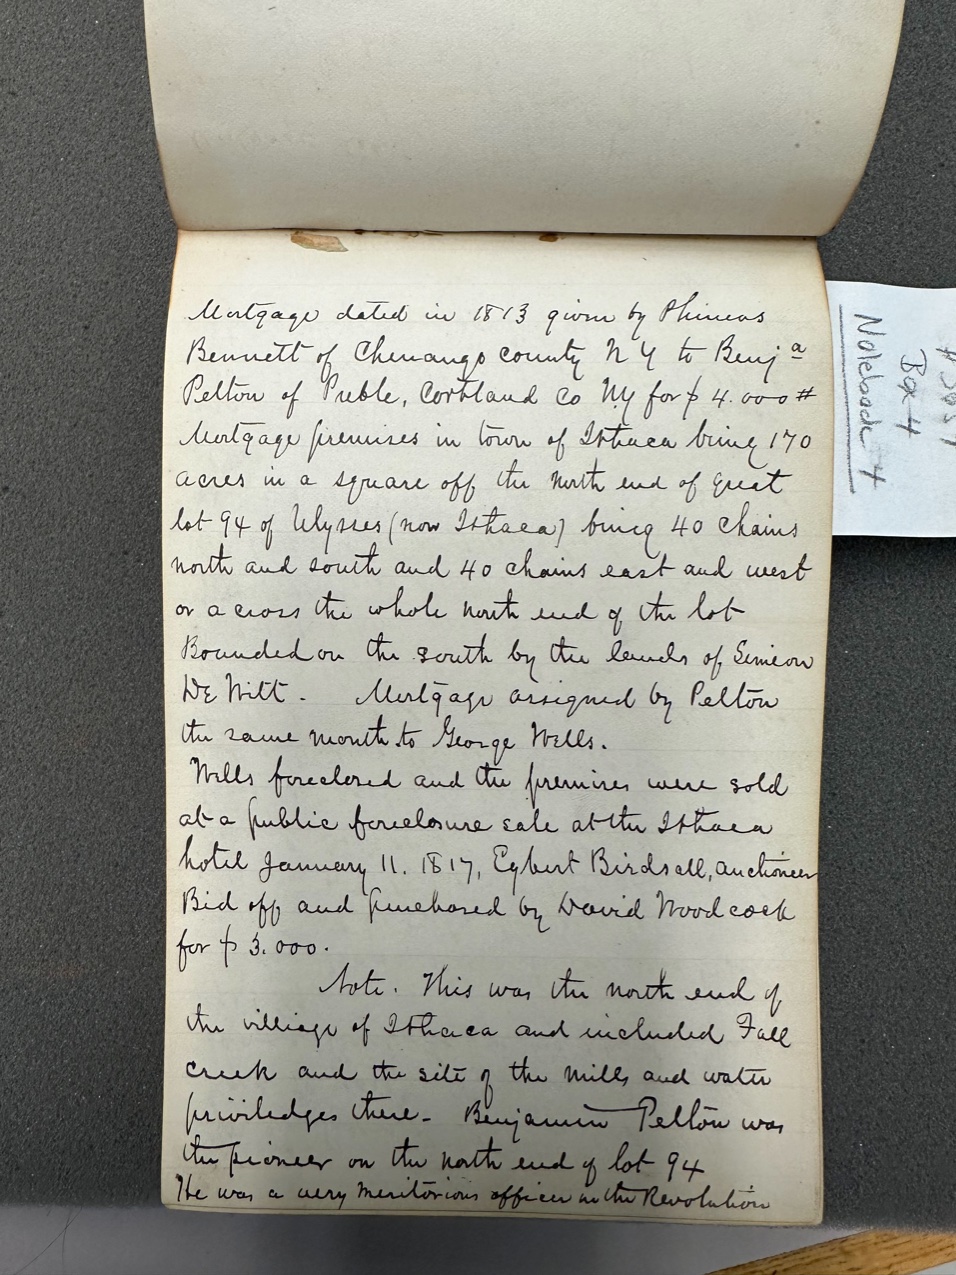 Mortgage dated in 1813 given by Phineas
Bennett of Chenango county N Y to Benjª
Pelton of Preble, Cortland Co N.Y for $ 4.000 #
Mortgage premises in town of Ithaca being 170
acres in a square off the north end of great
lot 94 of Ulysses (now Ithaca) being 40 chains
north and south and 40 chains east and west
or across the whole north end of the lot
Bounded on the south by the lands of Simeon
De Witt. Mortgage assigned by Pelton
the same month to George Wells.
Wells foreclosed and the premises were sold
at a public foreclosure sale at the Ithaca
hotel January 11. 1817, Egbert Birdsall, auctioneer
Bid off and purchased by David Woodcock
for $ 3.000.
Note. This was the north end of
the villiage of Ithaca and included Fall
creek and the site of the mills and water
priviledges there - Benjamin Pelton was
the pioneer on the north end of lot 94
He was a very meritorious officer in the Revolution
Box 4
Notebook 4